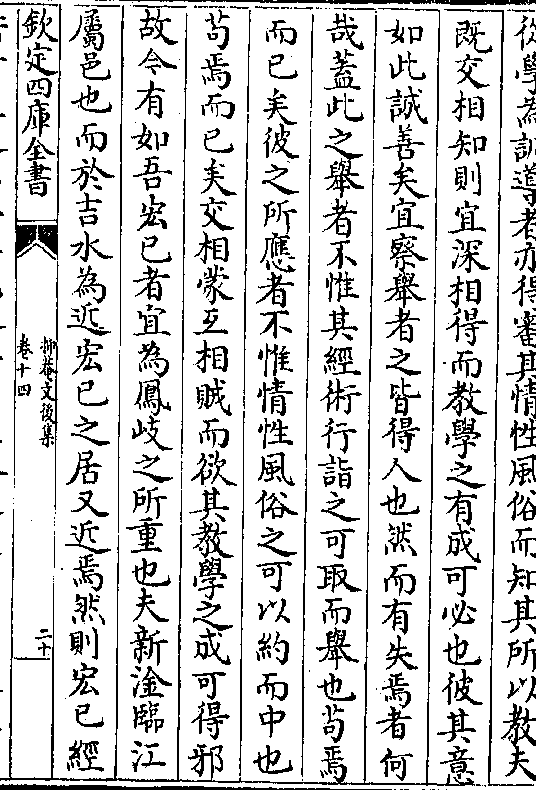 從學為訓導者亦得審其情性風俗而知其所以教夫
既交相知則宜深相得而教學之有成可必也彼其意
如此誠善矣宜察舉者之皆得人也然而有失焉者何
哉蓋此之舉者不惟其經術行誼之可取而舉也苟焉
而已矣彼之所應者不惟情性風俗之可以約而中也
苟焉而已矣交相蒙互相賊而欲其教學之成可得邪
故今有如吾宏已者宜為鳳岐之所重也夫新淦臨江
屬邑也而於吉水為近宏已之居又近焉然則宏已經
欽定四庫全書
抑菴文後集
卷十四
二十